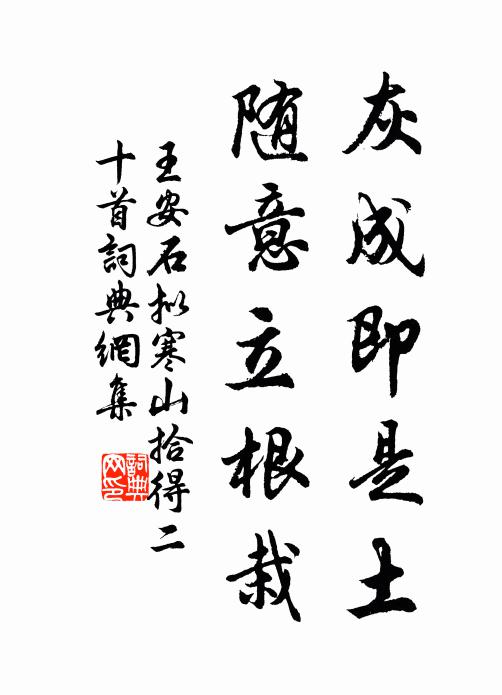 灰成即是土
随意立根栽
王安石拟寒山拾得二
十首詞典網集
詞典
网印